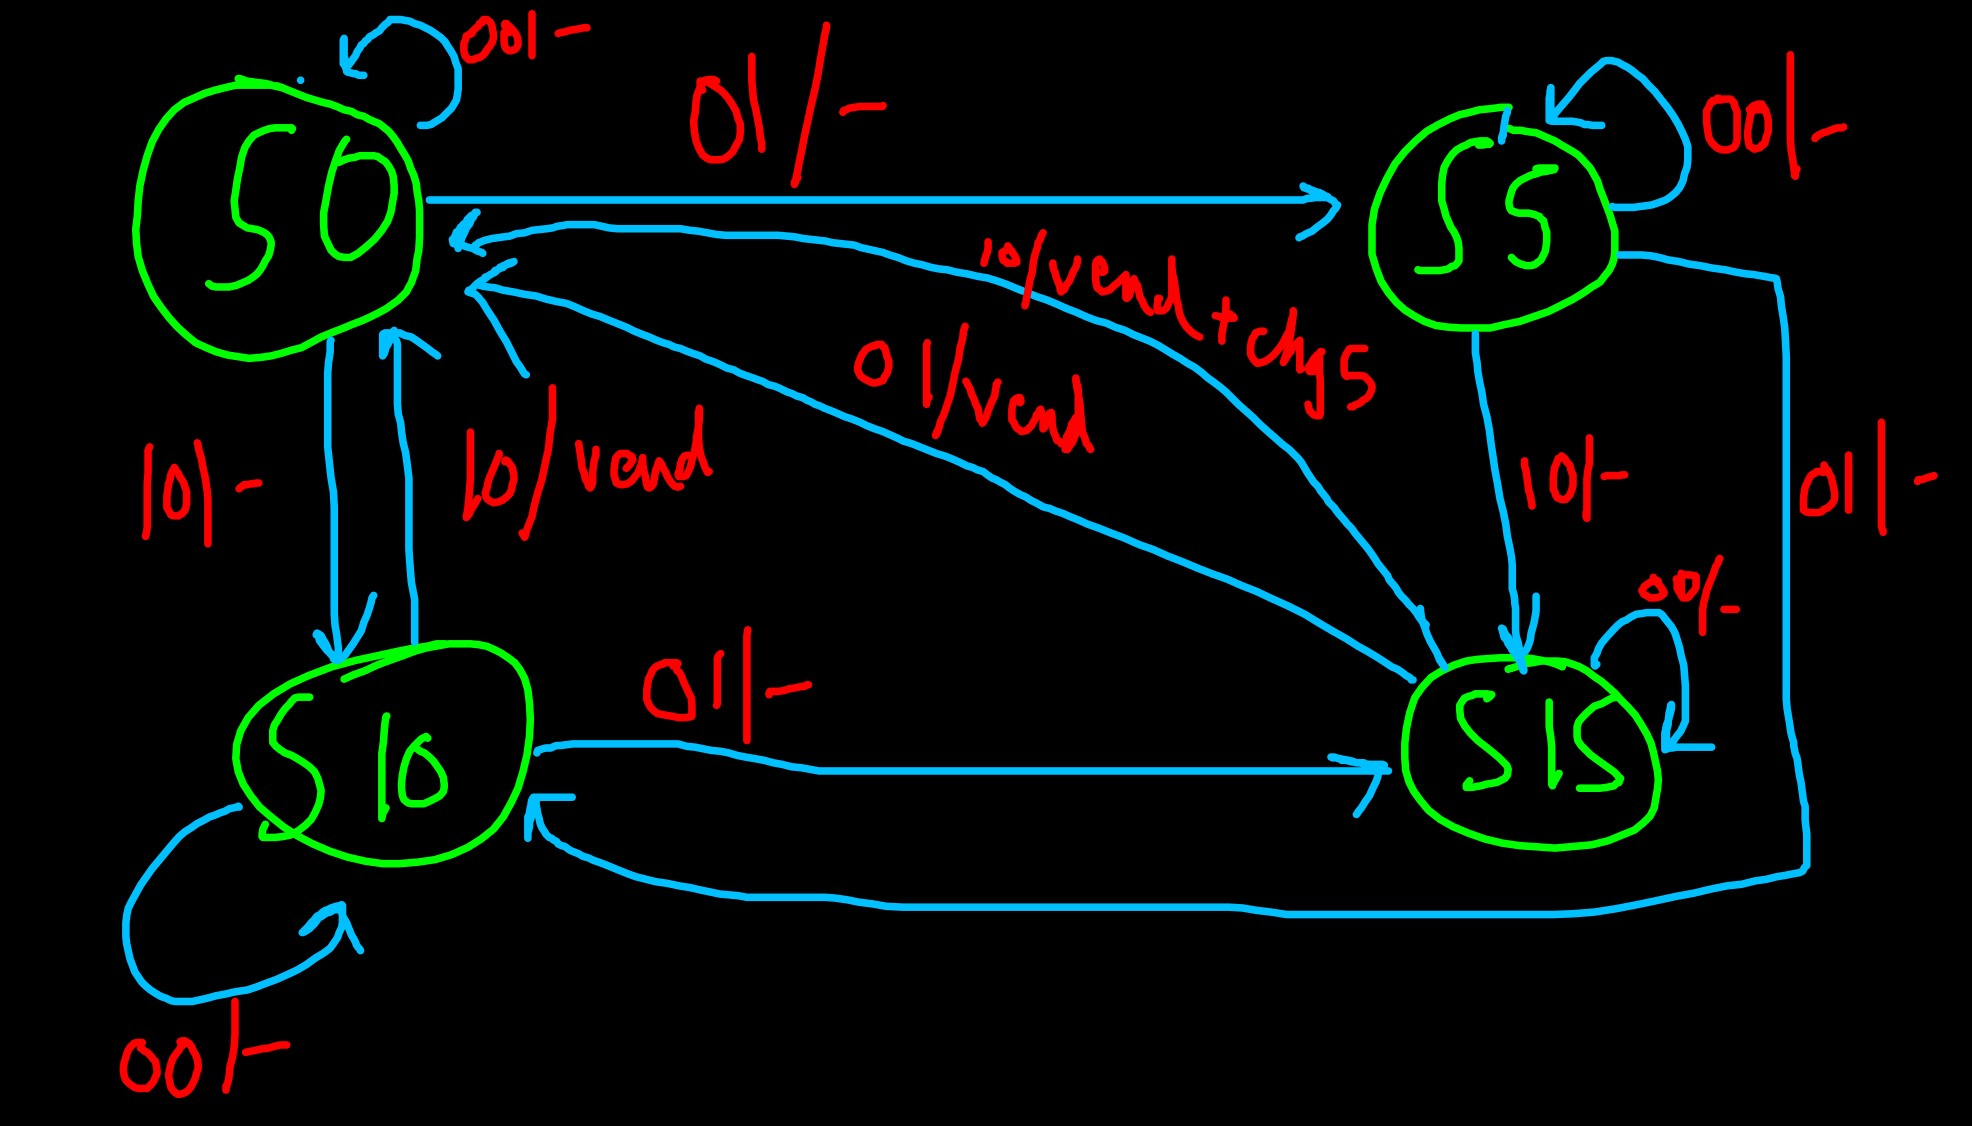 00/-
01/-
00/-
S0
S5
10/vend+chg5
01/vend
10/-
10/vend
10/-
01/-
00/-
01/-
S10
S15
00/-